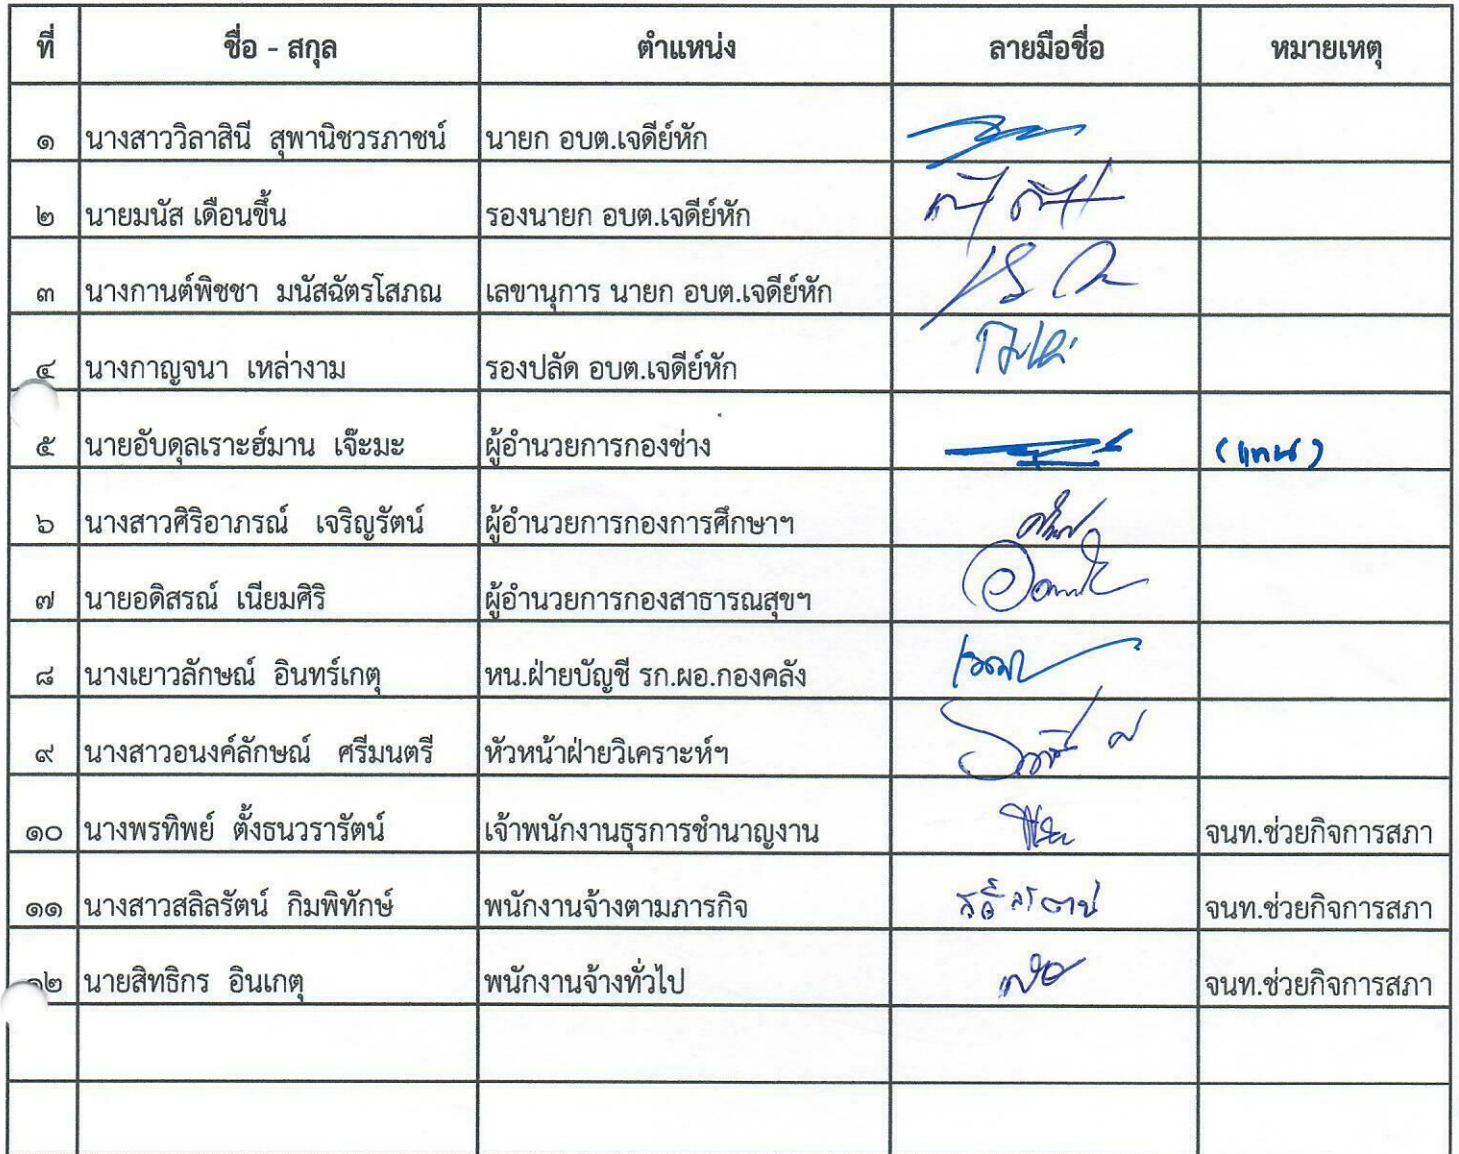 ที่ ชื่อ - สกุล ตำแหน่ง ลายมือชื่อ หมายเหตุ
๑ นางสาววิลาสินี สุพานิชวรภาชน์ นายก อบต.เจดีย์หัก
๒ นายมนัส เดือนขึ้น รองนายก อบต.เจดีย์หัก
๓ นางกานต์พิชชา มนัสฉัตรโสภณ เลขานุการ นายก อบต.เจดีย์หัก
๔ นางกาญจนา เหล่างาม รองปลัด อบต.เจดีย์หัก
๕ นายอับดุลเราะฮ์มาน เจ๊ะมะ ผู้อำนวยการกองช่าง (แทน)
๖ นางสาวศิริอาภรณ์ เจริญรัตน์ ผู้อำนวยการกองการศึกษาฯ
๗ นายอดิสรณ์ เนียมศิริ ผู้อำนวยการกองสาธารณสุขฯ
๘ นางเยาวลักษณ์ อินทร์เกตุ หน.ฝ่ายบัญชี รก.ผอ.กองคลัง
๙ นางสาวอนงค์ลักษณ์ ศรีมนตรี หัวหน้าฝ่ายวิเคราะห์ฯ
๑๐ นางพรทิพย์ ตั้งธนวรารัตน์ เจ้าพนักงานธุรการชำนาญงาน จนท.ช่วยกิจการสภา
๑๑ นางสาวสลิลรัตน์ กิมพิทักษ์ พนักงานจ้างตามภารกิจ จนท.ช่วยกิจการสภา
๑๒ นายสิทธิกร อินเกตุ พนักงานจ้างทั่วไป จนท.ช่วยกิจการสภา